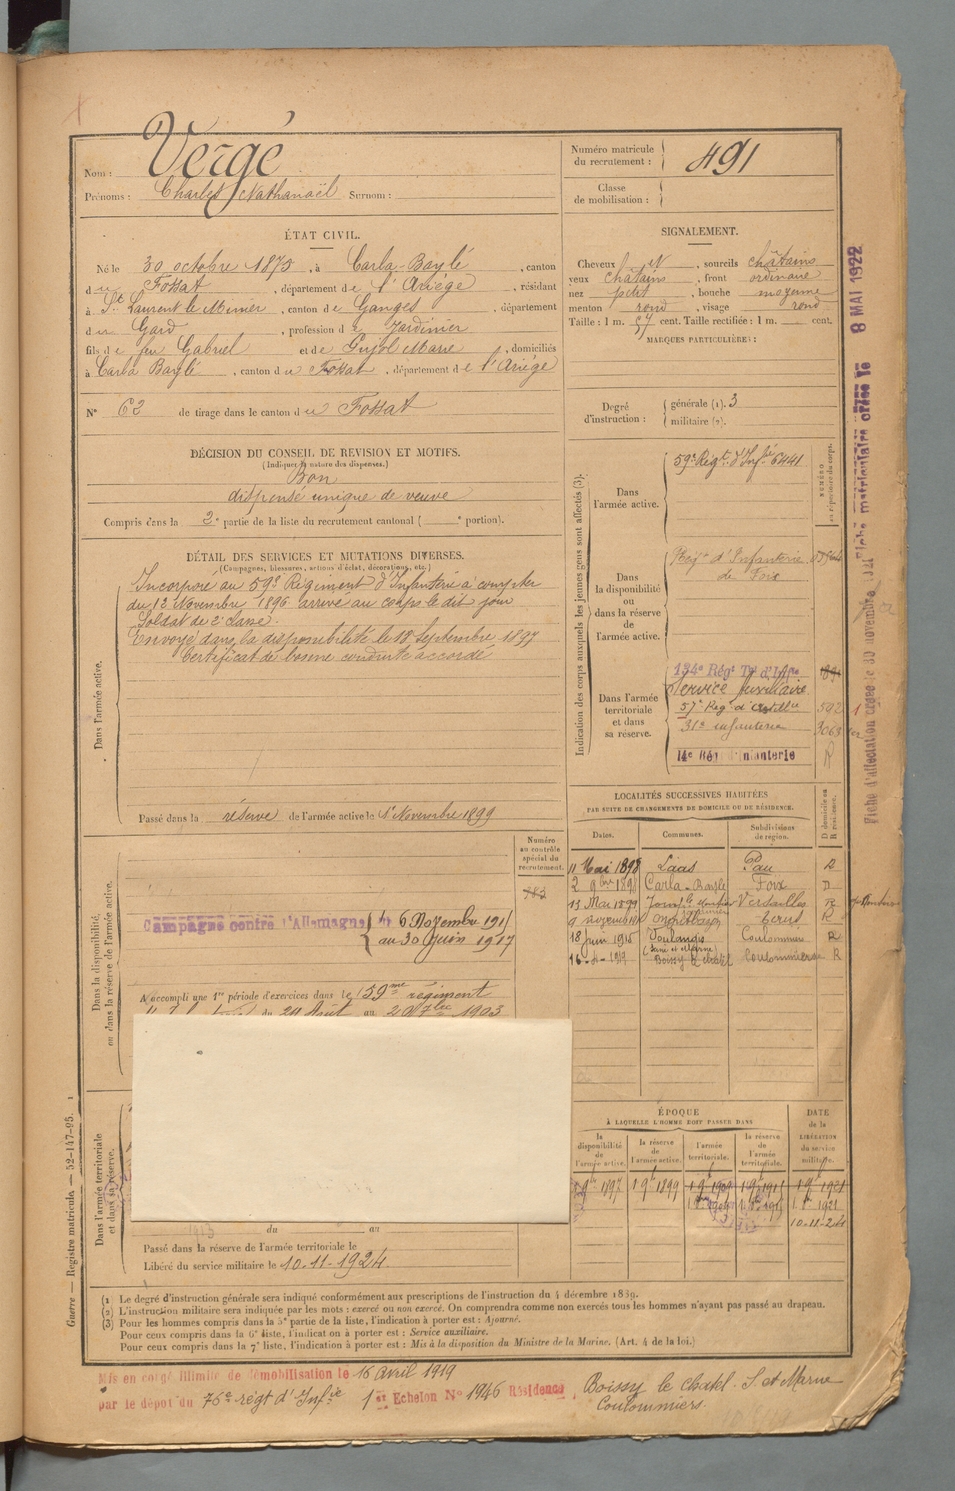 Nom : Vergé
Prénoms : Charles Nathanaël Surnom :
Numéro matricule du recrutement : 491
Classe de mobilisation :
ÉTAT CIVIL.
Né le 30 octobre 1875, à Carla-Baylé, canton
du Fossat, département de l'Ariège, résidant
à St Laurent le Minier, canton de Ganges, département
du Gard, profession de Jardinier
fils de feu Gabriel et de Pujol Marie, domiciliés
à Carla Baylé, canton du Fossat, département de l'Ariège
N° 62 de tirage dans le canton du Fossat
SIGNALEMENT.
Cheveux , sourcils châtains
yeux châtains, front ordinaire
nez petit, bouche moyenne
menton rond, visage rond
Taille : 1 m. 57 cent. Taille rectifiée : 1 m. cent.
MARQUES PARTICULIÈRES :
Degré d'instruction : générale (1). 3
militaire (2).
DÉCISION DU CONSEIL DE REVISION ET MOTIFS.
(Indiquer la nature des dispenses.)
Bon
dispensé unique de veuve
Compris dans la 2e partie de la liste du recrutement cantonal ( e portion).
DÉTAIL DES SERVICES ET MUTATIONS DIVERSES.
(Campagnes, blessures, actions d'éclat, décorations, etc.)
Dans l'armée active.
Incorporé au 59e Régiment d'Infanterie à compter
du 12 Novembre 1896 arrivé au corps le dit jour
Soldat de 2e classe.
Envoyé dans la disponibilité le 18 Septembre 1897
Certificat de bonne conduite accordé
Passé dans la réserve de l'armée active le 1er Novembre 1899
Indication des corps auxquels les jeunes gens sont affectés (3).
NUMÉRO au répertoire du corps.
Dans l'armée active.
59e Régt d'Infie 6441
Dans la disponibilité ou dans la réserve de l'armée active.
Régt d'Infanterie
de Foix
Dans l'armée territoriale et dans sa réserve.
134e Régt Tal d'Infie
Service Auxiliaire
57e Régt d'Artillie 592
31e infanterie
14e Rég d'Infanterie R
LOCALITÉS SUCCESSIVES HABITÉES
PAR SUITE DE CHANGEMENTS DE DOMICILE OU DE RÉSIDENCE.
Dates. Communes. Subdivisions de région. D domicile ou R résidence.
11 Mai 1898 Laas Pau D
2 9bre 1898 Carla-Baylé Foix D
13 Mai 1899 Versailles R
18 Juin 1915 Toulongis Coulommiers R
(Seine et Marne)
16-4-1919 Boissy le Chatel Coulommiers R
Dans la disponibilité ou dans la réserve de l'armée active.
Numéro au contrôle spécial du recrutement.
783
Campagne contre l'Allemagne du 6 Novembre 1915
au 30 Juin 1917
A accompli une 1re période d'exercices dans le 59me régiment
du 24 Août au 20 7bre 1903
Dans l'armée territoriale et dans sa réserve.
du au
Passé dans la réserve de l'armée territoriale le
Libéré du service militaire le 10-11-1924
ÉPOQUE
À LAQUELLE L'HOMME DOIT PASSER DANS
la disponibilité de l'armée active. la réserve de l'armée active. l'armée territoriale. la réserve de l'armée territoriale.
DATE de la LIBÉRATION du service militaire.
9bre 1897 1 9bre 1899 1 9bre 1909 1 9bre 1915 1 9bre 1921
10-11-24
(1) Le degré d'instruction générale sera indiqué conformément aux prescriptions de l'instruction du 4 décembre 1889.
(2) L'instruction militaire sera indiquée par les mots : exercé ou non exercé. On comprendra comme non exercés tous les hommes n'ayant pas passé au drapeau.
(3) Pour les hommes compris dans la 5e partie de la liste, l'indication à porter est : Ajourné.
Pour ceux compris dans la 6e liste, l'indication à porter est : Service auxiliaire.
Pour ceux compris dans la 7e liste, l'indication à porter est : Mis à la disposition du Ministre de la Marine. (Art. 4 de la loi.)
Mis en congé illimité de démobilisation le 16 avril 1919
par le dépôt du 76e régt d'Infie 1er Echelon N° 1946 Résidence, Boissy le Chatel. S et Marne
Coulommiers.
Guerre — Registre matricule. — 52-147-95.
Fiche d'affectation créée le 30 novembre 1921
Fiche matriculaire créée le 8 MAI 1922